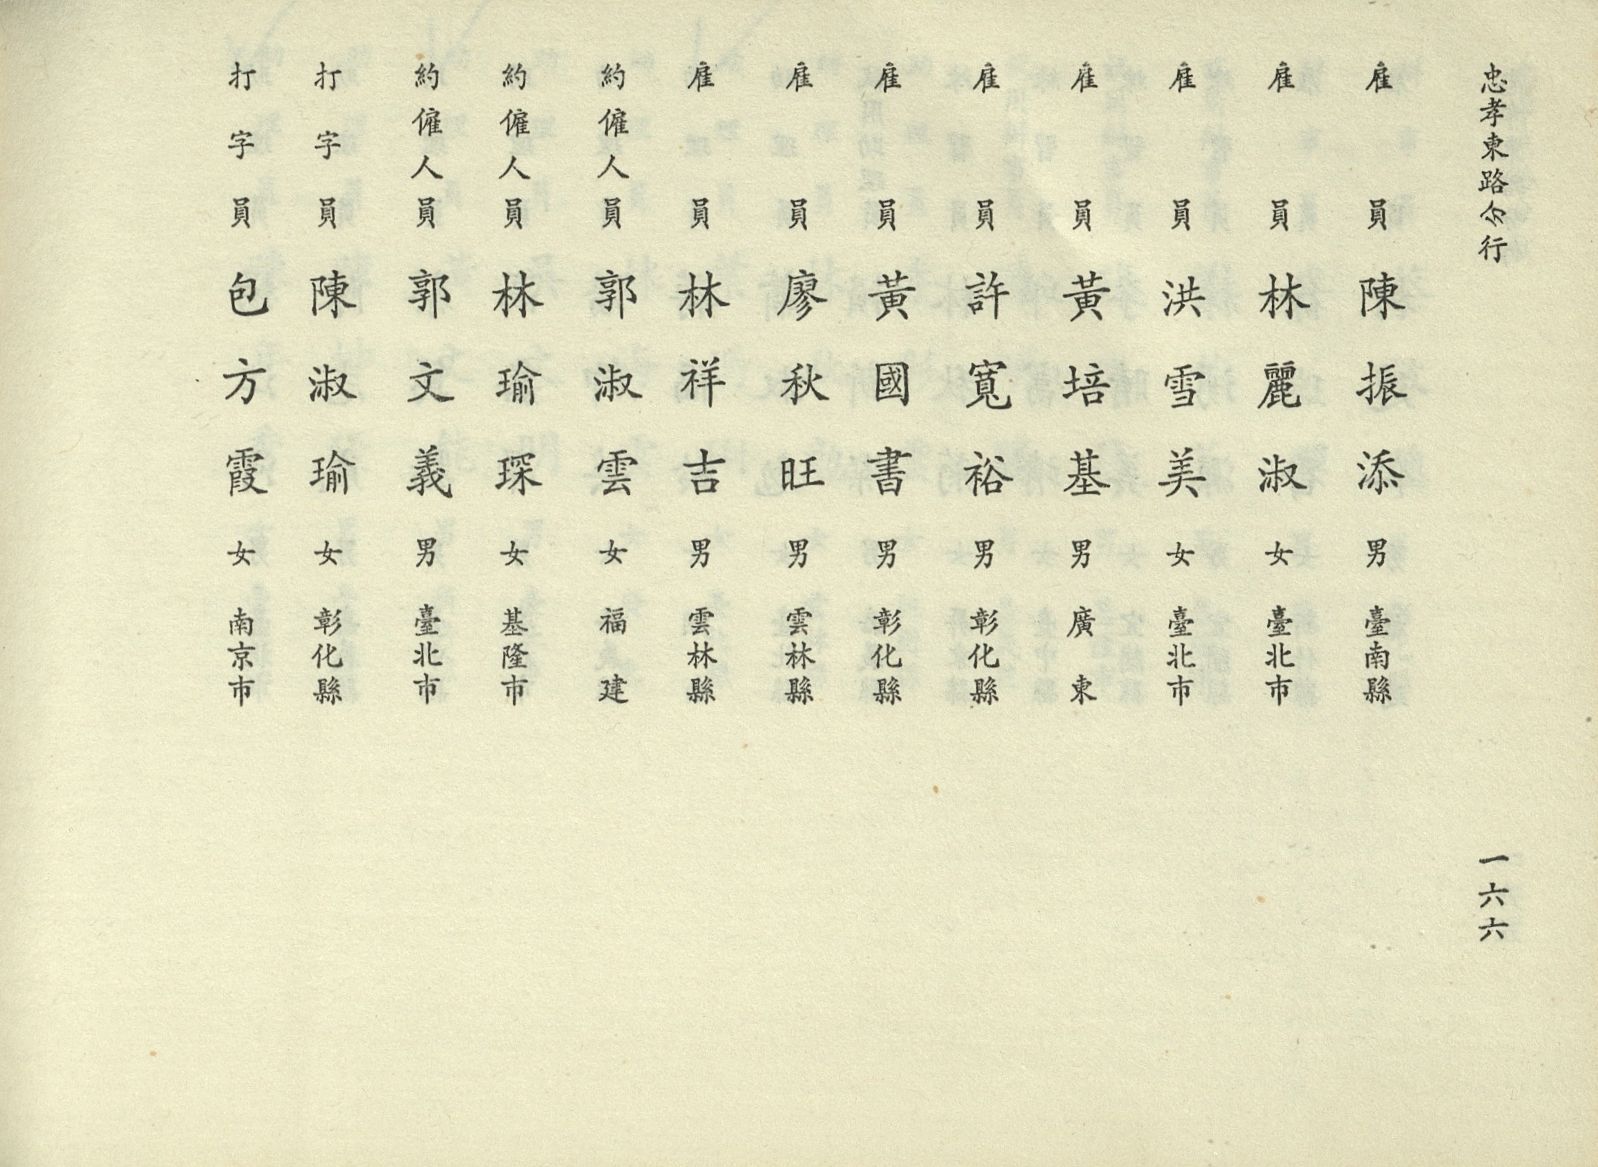 忠孝東路分行
一六六
雇員 陳振添 男 臺南縣
雇員 林麗淑 女 臺北市
雇員 洪雪美 女 臺北市
雇員 黃培基 男 廣東
雇員 許寬裕 男 彰化縣
雇員 黃國書 男 彰化縣
雇員 廖秋旺 男 雲林縣
雇員 林祥吉 男 雲林縣
約僱人員 郭淑雲 女 福建
約僱人員 林瑜琛 女 基隆市
約僱人員 郭文義 男 臺北市
打字員 陳淑瑜 女 彰化縣
打字員 包方霞 女 南京市